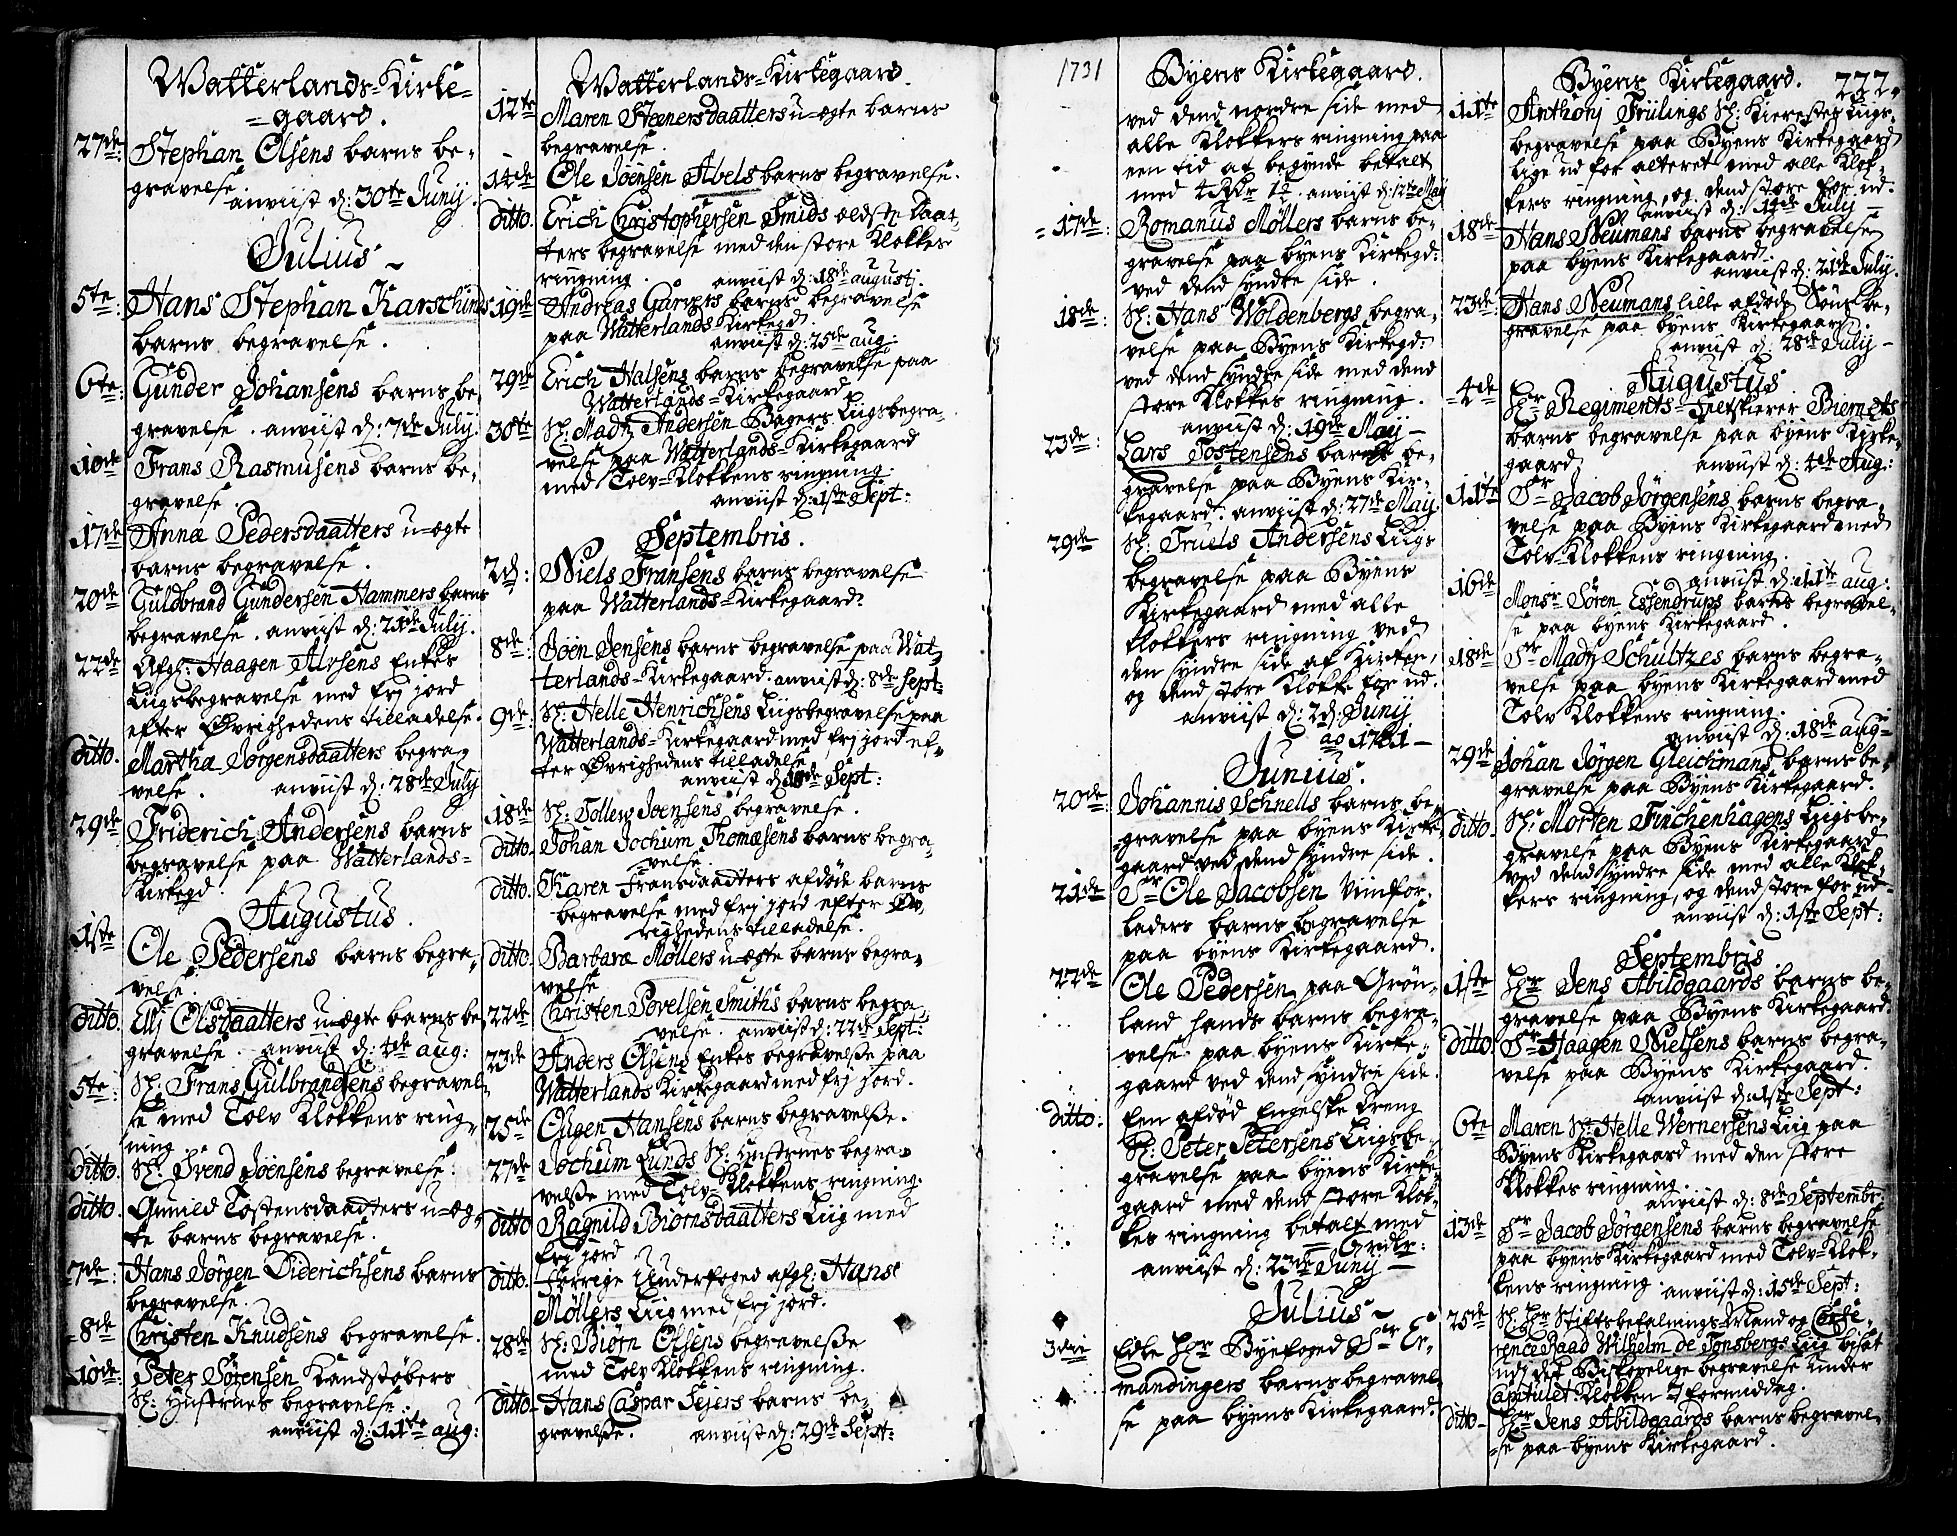 Watterlands-Kirke-
-gaard.
27de Stephan Olsens barns be-
gravelse.
anviist d: 30te Junij.
Julius
5te Hans Stephan Karschunds
barns begravelse.
6te Gunder Johansens barns be-
gravelse. anviist d: 7de Julij.
10de Frans Rasmusens barns be-
gravelse.
17de Annæ Pedersdaatters u-ægte
barns begravelse.
20de Guldbrand Gundersen Hammers barns
begravelse. anviist d: 21de Julij.
22de Afgl: Haagen Alfsens Enkes
Liigsbegravelse med frj jord
efter Øvrighedens tilladelse.
ditto. Martha Jørgensdaatters begra-
velse. anviist d: 28de Julij
29de Friderich Andersens barns
begravelse paa Watterlands-
Kirkegd
Augustus.
1ste Ole Pedersens barns begra-
velse.
ditto. Elij Olsdaatters u-ægte barns be-
gravelse. anviist d: 4de aug:
5te Sl: Frans Gulbrandsens begravel-
se med Tolv Klokkens ring-
ning
ditto. Sl: Svend Joensens begravelse.
ditto. Gunild Tostensdaadters u-æg-
te barns begravelse.
7de Hans Jørgen Diderichsens barns
begravelse.
8de Christen Knudsens begravelse.
10de Peter Sørensen Kandstøbers
Sl: Hustrues begravelse.
anviist d: 11te aug:
Watterlands-Kirkegaard.
12te Maren Steenersdaatters u-ægte barns
begravelse.
14de Ole Joensen Abels barns begravelse.
ditto. Erich Christophersen Smids ældste Daat-
ters begravelse med den store Klokkes
ringning. anviist d: 18de augusti.
19de Andreas barns begravelse
paa Watterlands Kirkegd.
anviist d: 25de aug:
29de Erich Halsens barns begravelse paa
Watterlands-Kirkegaard
30te Sl: Madtz Andersen Bagers Liigsbegra-
velse paa Watterlands-Kirkegaard
med Tolv-Klokkens ringning.
anviist d: 1ste Sept:
Septembris.
2d: Niels Fransens barns begravelse
paa Watterlands-Kirkegaard.
8de Joen Jensens barns begravelse paa Wat-
terlands-Kirkegaard. anviist d: 8de Sept:
9de Sl: Helle Henrichsens Liigsbegravelse paa
Watterlands-Kirkegaard med frj jord ef-
ter Øvrighedens tilladelse
anviist d: Sept:
18de Sl: Tollew Joensens begravelse.
ditto. Johan Jochum Thomæsens barns begra-
velse.
ditto. Karen Fransdaadters afdøde barns
begravelse med frj jord efter Øv-
righedens tilladelse.
ditto. Barbaræ Møllers u-ægte barns begra-
velse
22de Christen Povelsen Smiths barns begra-
velse. anviist d: 22de Sept:
23de Anders Olsens Enkes begravelse paa
Watterlands Kirkegaard med frj jord.
25de Ougen Hansens barns begravelse.
27de Jochum Lunds Sl: Hustrues begra-
velse med Tolv-Klokkens ringning.
ditto Ragnild Biørnsdaatters Liig med
frj jord
ditto. Forrige Underfoged afgl: Hans
Møllers Liig med frj jord.
28de Sl: Biørn Olsens begravelse
med Tolv Klokkens ringning.
ditto. Hans Caspar Fejers barns be-
gravelse. anviist d: 29de Sept:
1731
Byens Kirkegaard.
ved dend nordre side med
alle Klokkers ringning paa
een tid at begynde betalt
med 4 Rdr 1/2. anviist d: 12te Maij
17de Romanus Møllers barns be-
gravelse paa byens Kirkegd:
ved dend syndre side.
18de Sl: Hans Woldenbergs begra-
velse paa Byens Kirkegd:
ved dend syndre side med dend
store Klokkes ringning.
anviist d: 19de Maij
23de Lars Tostensens barns be-
gravelse paa Byens Kir-
kegaard. anviist d: 27de Maij
29de Sl: Truels Andersens Liigs
begravelse paa Byens
Kirkegaard med alle
Klokkers ringning ved
den syndre side af Kirken,
og dend store Klokke for ud.
anviist d: 2d: Junij
ao 1731
Junius.
20de Johannis Schnells barns be-
gravelse paa byens Kirke-
gaard ved dend syndre side.
21de Sr Ole Jacobsen Viinfor-
laders barns begravelse
paa byens Kirkegaard.
22de Ole Pedersen paa Grøn-
land hands barns begra-
velse paa byens Kirke-
gaard ved dend syndre side.
ditto. Een afdød Engelske dreng
Sl: Peter Petersens Liigsbe-
gravelse paa byens Kirke-
gaard med dend store Klok-
kes ringning betalt med
anviist d: 23de Junij
Julius
3die Edle Hr Byefoged Sr Er-
mandingers barns begravel-
se paa byens Kirkegaard.
Byens Kirkegaard. 222.
11te Anthonj Friilings Sl: Kierestes Liigs-
begravelse paa Byens Kirkegaard
lige ud for alteret med alle Klok-
kers ringning, og dend store for ud.
anviist d: 14de Julij
18de Hans Neumans barns begravelse
paa byens Kirkegaard.
anviist d: 21de Julij.
23de Hans Neumans lille afdøde Søns be-
gravelse paa byens Kirkegaard.
anviist d: 28de Julij
Augustus
4de Hr Regiments-Feltskierer Biernets
barns begravelse paa byens Kirke-
gaard anviist d: 4de Aug:
11te Sr Jacob Jørgensens barns begra-
velse paa Byens Kirkegaard med
Tolv Klokkens ringning.
anviist d: 11te aug:
16de Monsr Søren Essendrups barns begravel-
se paa byens Kirkegaard.
18de Sr Madtz Schultzes barns begra-
velse paa byens Kirkegaard med
Tolv Klokkens ringning.
anviist d: 18de aug
29de Johan Jørgen Gleichmans barns be-
gravelse paa Byens Kirkegaard.
ditto. Sl: Morten Finchenhagens Liigsbe-
gravelse paa Byens Kirkegaard
ved dend syndre side med alle Klok-
kers ringning, og dend store for ud
anviist d: 1ste Sept:
Septembris
1ste Hr Jens Abildgaards barns be-
gravelse paa Byens Kirkegaard.
ditto Sr Haagen Nielsens barns begra-
velse paa Byens Kirkegaard.
anviist d: 1ste Sept:
6te Maren Sl: Helle Wernersens Liig paa
Byens Kirkegaard med den store
Klokkes ringning.
anviist d: 8de Septembr:
13de Sr Jacob Jørgensens barns begravelse
paa byens Kirkegaard med Tolv-Klok-
kens ringning. anviist d: 15de Sept:
25de Sl: Hr Stiftsbefalnings-Mand og Confe-
rence Raad Wilhelm de Tonsbergs Liig bisat
udi det Biskopelige begravelse under
Capitulet Klokken 7 formiddag.
ditto Hr Jens Abildgaards barns begravel-
se paa byens Kirkegaard.